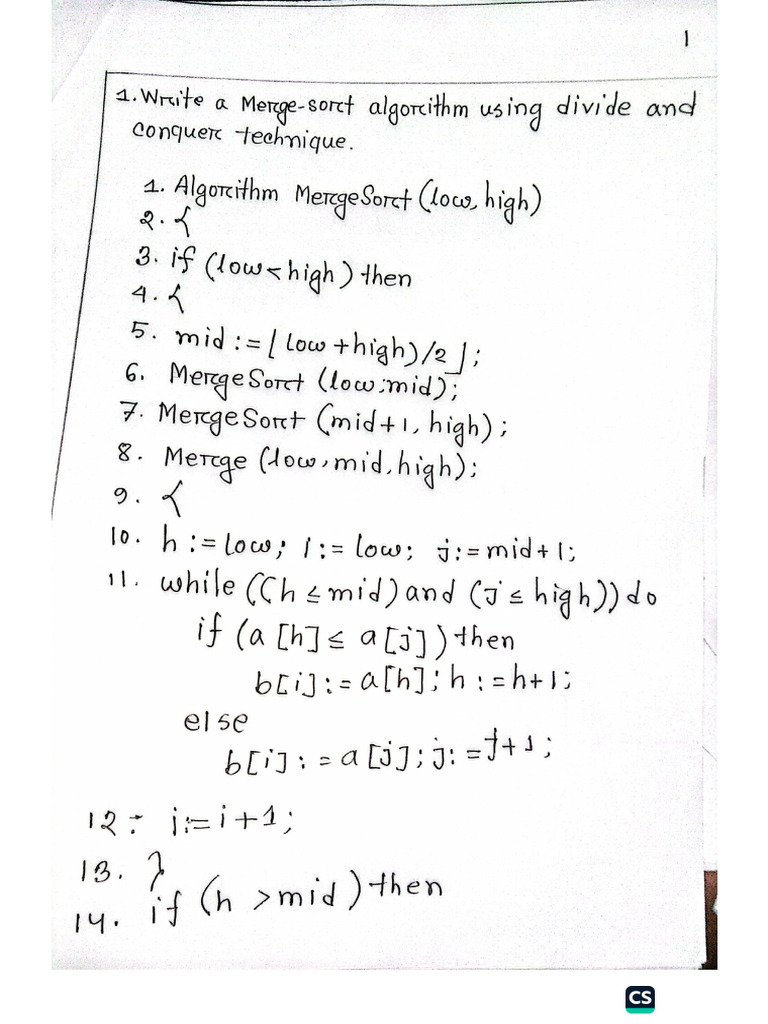 1
1. Write a Merge-sort algorithm using divide and
conquer technique.
1. Algorithm MergeSort (low, high)
2. {
3. if (low < high) then
4. {
5. mid := ⌊ low + high)/2 ⌋;
6. MergeSort (low, mid);
7. MergeSort (mid+1, high);
8. Merge (low, mid, high);
9. {
10. h := low; i := low; j := mid+1;
11. while ((h ≤ mid) and (j ≤ high)) do
if (a[h] ≤ a[j]) then
b[i] := a[h]; h := h+1;
else
b[i] := a[j]; j := j+1;
12. i := i+1;
13. }
14. if (h > mid) then
CS